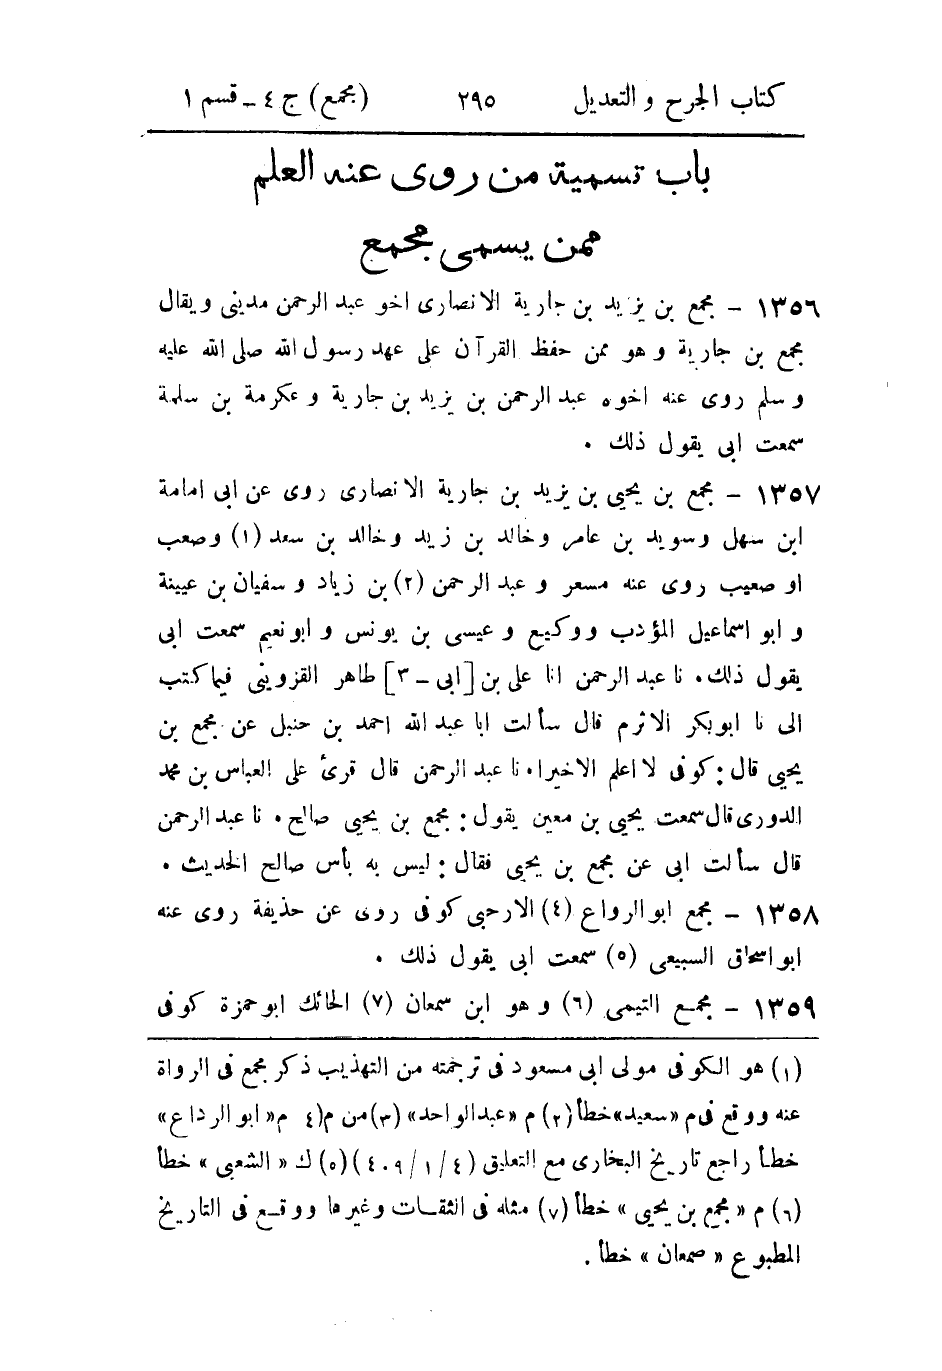 كتاب الجرح و التعديل ٢٩٥ (مجمع) ج ٤ - قسم ١
باب تسمية من روى عنه العلم
ممن يسمى مجمع
١٣٥٦ - مجمع بن يزيد بن جارية الانصارى اخو عبد الرحمن مدينى ويقال
مجمع بن جارية و هو ممن حفظ القرآن على عهد رسول الله صلى الله عليه
و سلم روى عنه اخوه عبد الرحمن بن يزيد بن جارية و عكرمة بن سلمة
سمعت ابى يقول ذلك .
١٣٥٧ - مجمع بن يحيى بن يزيد بن جارية الانصارى روى عن ابى امامة
ابن سهل وسويد بن عامر وخالد بن زيد وخالد بن سعد (١) وصعب
او صعيب روى عنه مسعر و عبد الرحمن (٢) بن زياد و سفيان بن عيينة
و ابو اسماعيل المؤدب ووكيع و عيسى بن يونس و ابونعيم سمعت ابى
يقول ذلك . نا عبد الرحمن انا على بن [ابى - ٣] طاهر القزوينى فيما كتب
الى نا ابوبكر الاثرم قال سألت ابا عبد الله احمد بن حنبل عن مجمع بن
يحيى قال : كوفى لا اعلم الاخيرا . نا عبد الرحمن قال قرئ على العباس بن محمد
الدورى قال سمعت يحيى بن معين يقول : مجمع بن يحيى صالح . نا عبد الرحمن
قال سألت ابى عن مجمع بن يحيى فقال : ليس به بأس صالح الحديث .
١٣٥٨ - مجمع ابو الرواع (٤) الارحبى كوفى روى عن حذيفة روى عنه
ابو اسحاق السبيعى (٥) سمعت ابى يقول ذلك .
١٣٥٩ - مجمع التيمى (٦) و هو ابن سمعان (٧) الحائك ابو حمزة كوفى
(١) هو الكوفى مولى ابى مسعود فى ترجمته من التهذيب ذكر مجمع فى الرواة
عنه ووقع فى م «سعيد» خطأ (٢) م «عبد الواحد» (٣) من م (٤ م« ابو الرداع»
خطأ راجع تاريخ البخارى مع التعليق (٤ / ١ / ٤٠٩) (٥) ك « الشعبى » خطأ
(٦) م « مجمع بن يحيى » خطأ (٧) مثله فى الثقات وغيرها ووقع فى التاريخ
المطبوع « صمعان » خطأ .